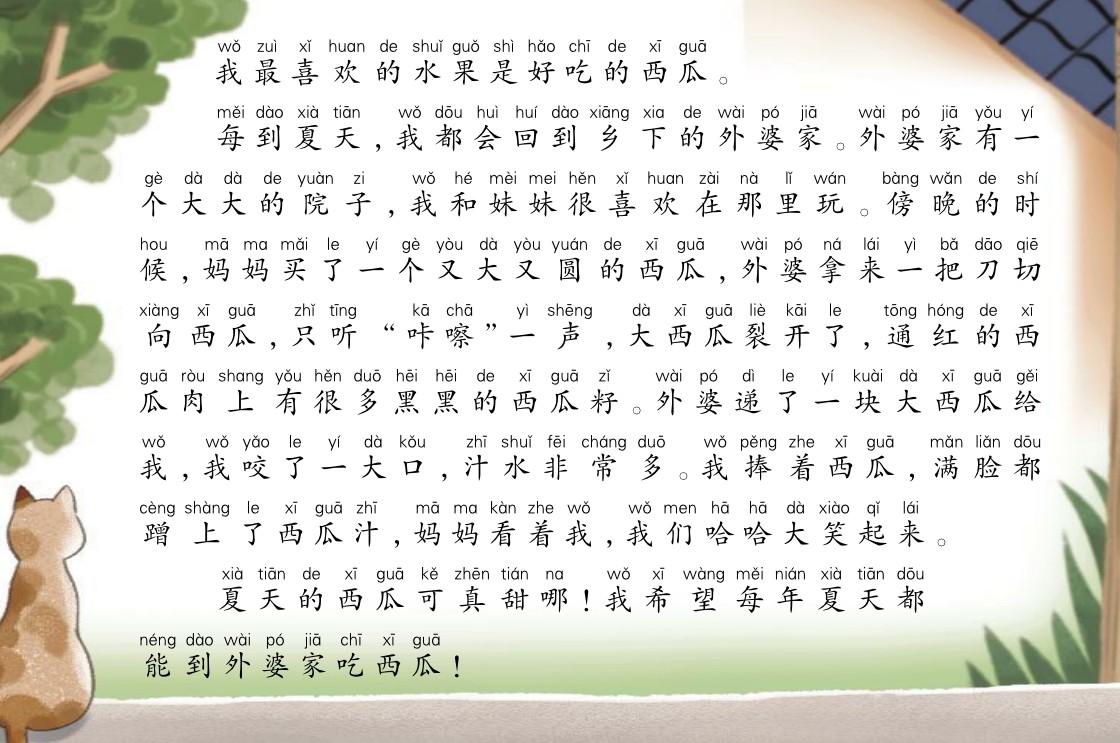 wǒ zuì xǐ huan de shuǐ guǒ shì hǎo chī de xī guā
我最喜欢的水果是好吃的西瓜。
měi dào xià tiān wǒ dōu huì huí dào xiāng xia de wài pó jiā wài pó jiā yǒu yí
每到夏天,我都会回到乡下的外婆家。外婆家有一
gè dà dà de yuàn zi wǒ hé mèi mei hěn xǐ huan zài nà lǐ wán bàng wǎn de shí
个大大的院子,我和妹妹很喜欢在那里玩。傍晚的时
hou mā ma mǎi le yí gè yòu dà yòu yuán de xī guā wài pó ná lái yì bǎ dāo qiē
候,妈妈买了一个又大又圆的西瓜,外婆拿来一把刀切
xiàng xī guā zhǐ tīng kā chā yì shēng dà xī guā liè kāi le tōng hóng de xī
向西瓜,只听“咔嚓”一声,大西瓜裂开了,通红的西
guā ròu shang yǒu hěn duō hēi hēi de xī guā zǐ wài pó dì le yí kuài dà xī guā gěi
瓜肉上有很多黑黑的西瓜籽。外婆递了一块大西瓜给
wǒ wǒ yǎo le yí dà kǒu zhī shuǐ fēi cháng duō wǒ pěng zhe xī guā mǎn liǎn dōu
我,我咬了一大口,汁水非常多。我捧着西瓜,满脸都
cèng shàng le xī guā zhī mā ma kàn zhe wǒ wǒ men hā hā dà xiào qǐ lái
蹭上了西瓜汁,妈妈看着我,我们哈哈大笑起来。
xià tiān de xī guā kě zhēn tián na wǒ xī wàng měi nián xià tiān dōu
夏天的西瓜可真甜哪!我希望每年夏天都
néng dào wài pó jiā chī xī guā
能到外婆家吃西瓜!